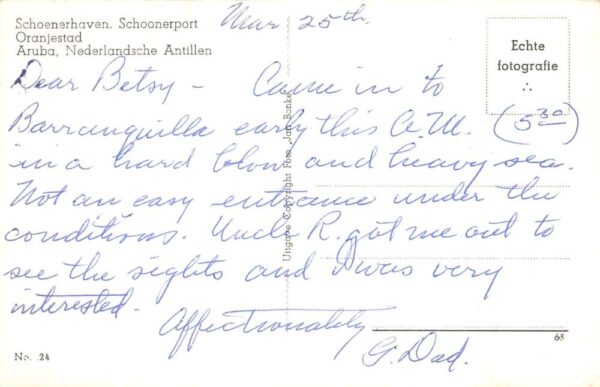 Schoenerhaven. Schoonerport
Oranjestad
Aruba, Nederlandsche Antillen
Mar 25th
Echte
fotografie
Dear Betsy - Came in to
Barranquilla early this A.M. (5 30)
in a hard blow and heavy sea.
Not an easy entrance under the
conditions. Uncle R. got me out to
see the sights and I was very
interested.
Affectionately
G. Dad.
Uitgave Copyright Foto
No. 24
65